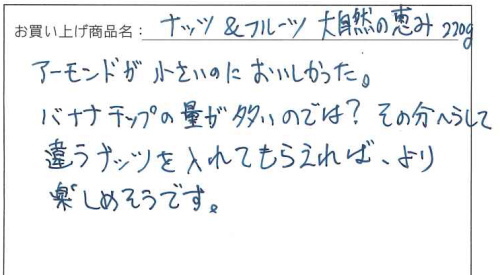 お買い上げ商品名: ナッツ&フルーツ 大自然の恵み 220g
アーモンドが小さいのにおいしかった。
バナナチップの量が多いのでは? その分へらして
違うナッツを入れてもらえれば、より
楽しめそうです。